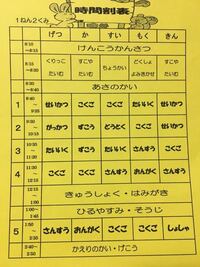 時間割表
1ねん2くみ
げつ か すい もく きん
8:10
～8:15 けんこうかんさつ
8:15
～8:35 くりっこ すこや ちょうかい どくしょ すこや
たいむ たいむ よみきかせ たいむ
あさのかい
1 せいかつ こくご こくご たいいく せいかつ
2 がっかつ ずこう どうとく こくご こくご
3 たいいく ずこう さんすう さんすう
4 こくご さんすう せいかつ こくご
きゅうしょく・はみがき
ひるやすみ・そうじ
5 さんすう おんがく こくご こくご しょしゃ
かえりのかい・げこう